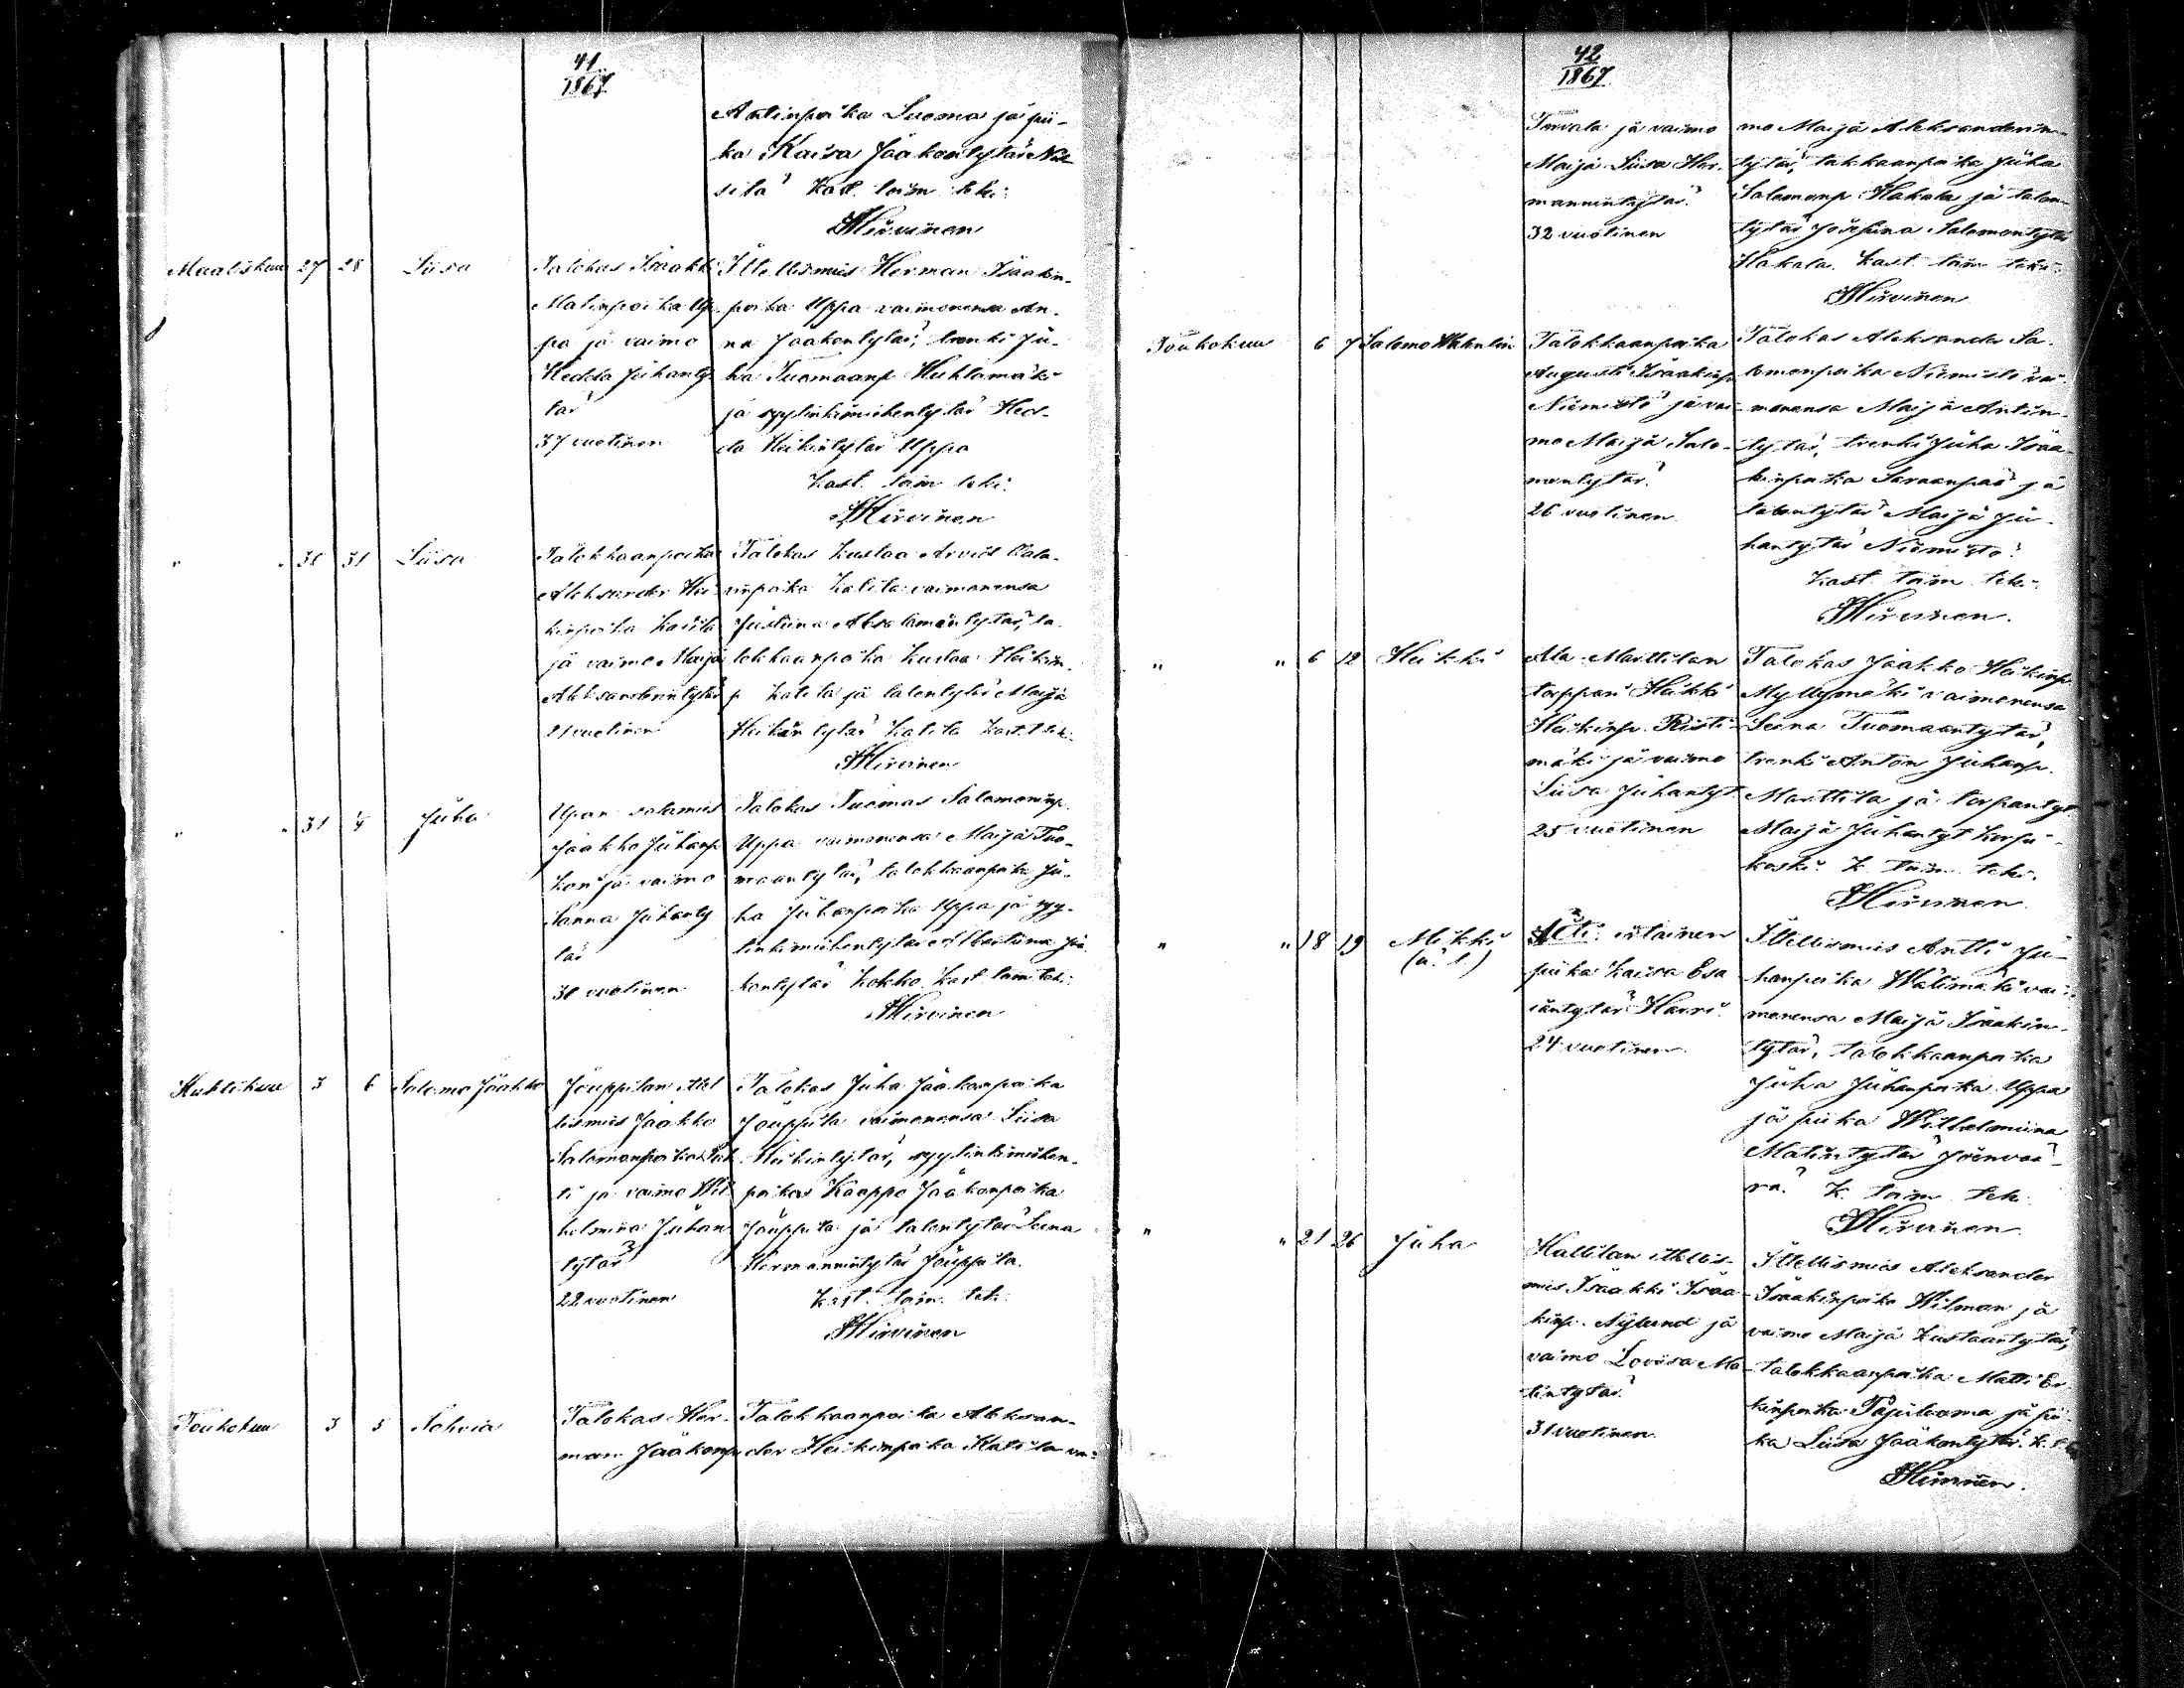 41
1867
Antinpoika Luoma ja pii-
ka Kaisa Jaakontytär
Kast. toim. teki:
Hirvinen
Maaliskuu 27 28 Liisa
Talokas Isaakki
Matinpoika Up-
pa ja vaimo
Hedda Juhanty-
tär
37 vuotinen
Itellismies Herman Isaakin-
poika Uppa vaimonensa An-
na Jaakontytär, renki Ju-
ha Tuomaanp Huhtamäki
ja syytinkimiehentytär Hed-
da Heikintytär Uppa
Kast. toim. teki:
Hirvinen
" " 30 31 Liisa
Talokkaanpoika
Aleksander Hei-
kinpoika
ja vaimo Maija
Aleksanderintytär
21 vuotinen
Talokas Kustaa
poika Katila vaimonensa
Justiina Absalomintytär, ta-
lokkaanpoika Kustaa Heikin-
p Katila ja talontytär Maija
Heikintytär Katila Kast. t. teki:
Hirvinen
" " 31 4 Juha
Upan
Jaakko Juhanp
ja vaimo
Sanna Juhanty
tär
30 vuotinen
Talokas Tuomas Salomoninp.
Uppa vaimonensa Maija Tuo-
maantytär, talokkaanpoika Ju-
ha Juhanpoika Uppa ja syy-
tinkimiehentytär Albertiina Jaa-
kontytär Kokko Kast. toim. teki:
Hirvinen
Huhtikuu 3 6 Salomo Jaakko
Jouppilan itel-
lismies Jaakko
Salomonpoika
ja vaimo Wil-
helmina Juhan-
tytär
22 vuotinen
Talokas Juha Jaakonpoika
Jouppila vaimonensa Liisa
Heikintytär, syytinkimiehen-
poika Kaappo Jaakonpoika
Jouppila ja talontytär Leena
Hermannintytär Jouppila.
Kast. toim. teki:
Hirvinen
Toukokuu 3 5 Sohvia
Talokas Her-
man Jaakonp
Talokkaanpoika Aleksan-
der Heikinpoika Katila vai-
42
1867
ja vaimo
Maija Liisa Her-
mannintytär
32 vuotinen
mo Maija Aleksanderin-
tytär, talokkaanpoika Juha
Salomonp Hakala ja talon-
tytär Josefiina Salomontytär
Hakala. Kast. toim. teki:
Hirvinen
Toukokuu 6 7 Salomo
Talokkaanpoika
Augusti Isaakinp
Niemistö ja vai-
mo Maija Salo-
montytär
26 vuotinen
Talokas Aleksander Sa-
lomonpoika Niemistö vai-
monensa Maija Antin-
tytär, trenki Juha Isaa-
kinpoika ja
talontytär Maija Ju-
hantytär Niemistö.
Kast. toim. teki:
Hirvinen.
" " 6 12 Heikki
Ala-Marttilan
torppari Heikki
Heikinp. Risti-
mäki ja vaimo
Liisa Juhantyt
25 vuotinen
Talokas Jaakko Heikinp.
Myllymäki vaimonensa
Leena Tuomaantytär,
trenki Anton Juhanp.
Marttila ja torpantyt
Maija Juhantyt Korpi-
koski. K. toim. teki.
Hirvinen
" " 18 19 Mikki
(ä. l.)
Äiti: itlainen
piika Kaisa Esa
iantytär Harri
24 vuotinen
Itellismies Antti Ju-
hanpoika Wälimäki vai-
monensa Maija Isaakin-
tytär, talokkaanpoika
Juha Juhanpoika Uppa
ja piika Wilhelmiina
Matintytär Joenvaa-
ra. K. toim. teki
Hirvinen
" " 21 26 Juha
Kallilan itellis-
mies Isaakki Isaa-
kinp. Nylund ja
vaimo Loviisa Ma-
tintytär
31 vuotinen.
Itellismies Aleksander
Isaakinpoika Wilman ja
vaimo Maija Kustaantytär,
talokkaanpoika Matti Er-
kinpoika ja pii-
ka Liisa Jaakontytär. K. t.
Hirvinen.